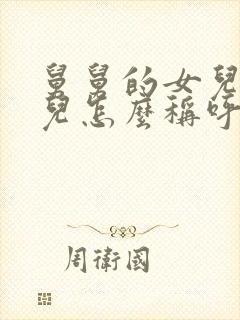 舅舅的女兒
兒怎麼稱呼
周衛國